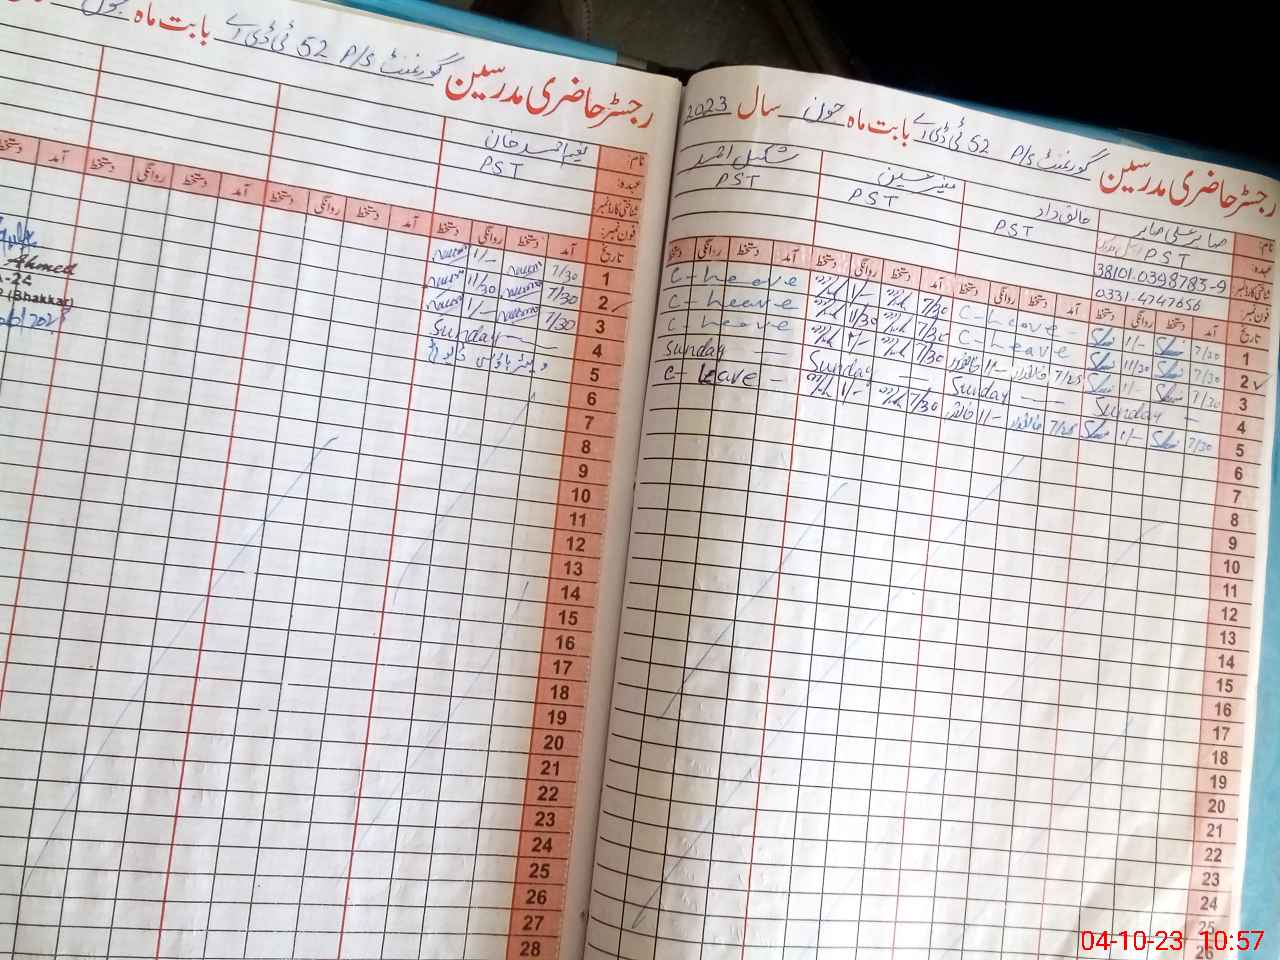 رجسٹر حاضری مدرسین گورنمنٹ P/S 52 ٹی ڈی اے بابت ماہ جون سال 2023
نام: صابر علی صابر خالق داد منیر حسین شکیل احمد
عہدہ: PST PST PST PST
شناختی کارڈ نمبر 38101-0398783-9
فون نمبر: 0331-4747656
تاریخ آمد دستخط روانگی دستخط آمد دستخط روانگی دستخط آمد دستخط روانگی دستخط آمد دستخط روانگی دستخط
1 7/30 1/- C-leave - 7/30 1/- C-leave
2 7/30 11/30 C-leave 7/30 11/30 C-leave
3 7/30 1/- 7/25 1/- 7/30 1/- C-leave
4 Sunday - Sunday - Sunday - Sunday -
5 7/30 1/- 7/25 1/- 7/30 1/- C-leave -
6
7
8
9
10
11
12
13
14
15
16
17
18
19
20
21
22
23
24
25
26
رجسٹر حاضری مدرسین گورنمنٹ P/S 52 ٹی ڈی اے بابت ماہ جون
نام: نعیم احمد خان
عہدہ: PST
شناختی کارڈ نمبر
فون نمبر:
تاریخ آمد دستخط روانگی دستخط آمد دستخط روانگی دستخط آمد دستخط روانگی دستخط آمد
1 7/30 1/-
2 7/30 11/30
3 7/30 1/-
4 Sunday
5
6
7
8
9
10
11
12
13
14
15
16
17
18
19
20
21
22
23
24
25
26
27
28
Ahmed
(Bhakkar)
04-10-23 10:57